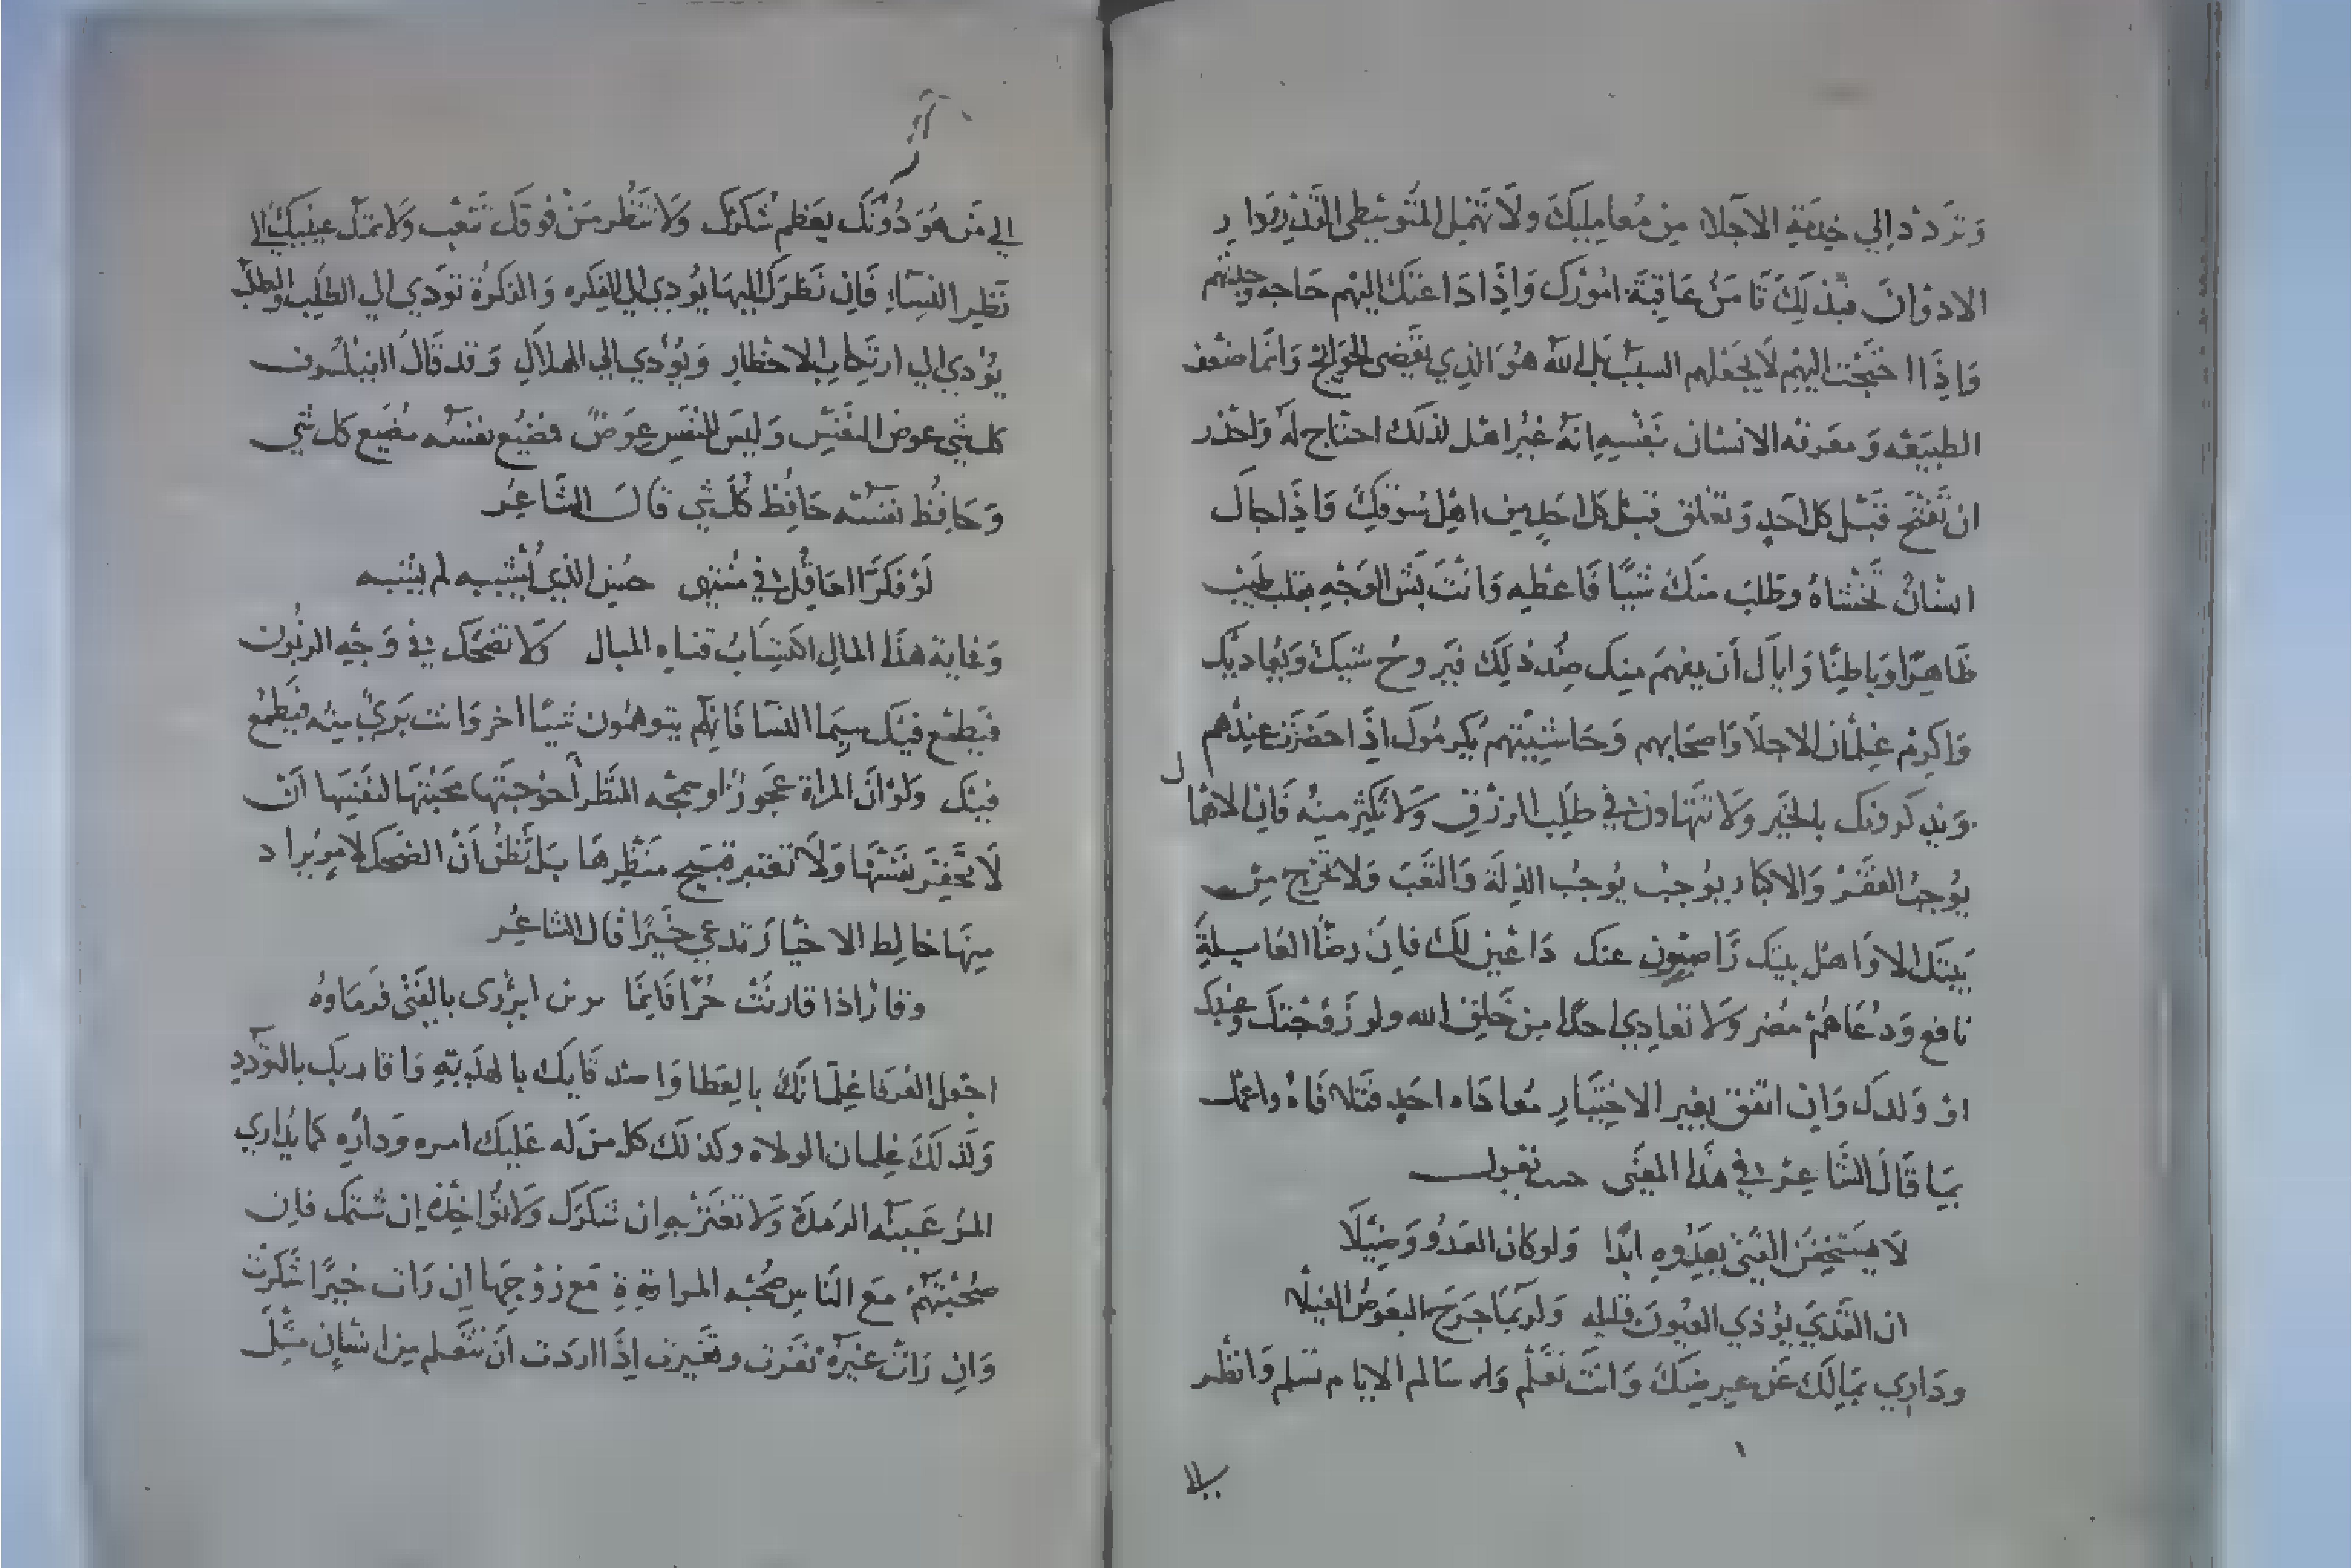 وَتَردد اِلي خِدمَةِ الاجَلا مِن مُعامِليكَ ولَا تهمل المتَوسِطي القَدر بدار
الادوان فبذَلِكَ تَامَن عَاقِبَة امُورك وَاِذَا دَاعتك اليهم حَاجه وجيتهم
وَاِذَا احتجت اليهِم لَا تجعَلهم السبب بَل الله هُوَ الذِي يَقضي الحوَايج وَانمَا ضعف
الطبيعَه وَمعرفه الانسان بنَفسِهِ انهُ غَير اهل لذلك احتاج لهُ وَاحذر
ان تفتَح قبَل كل احَدٍ وَتغلق قبل كل احَدٍ مِن اهِل سُوقكِ فَاِذَا جاك
انسَانُ تخشَاهُ وَطَلبَ منكَ شَيًا فَاعطِه وَانتَ بَش الوَجهِ بقلب طَيب
ظَاهِرًا وَبَاطِنًا وَاياك اَن يفهَم مِنك ضِد ذلِكَ فيَروحُ شيك وَيُعَاديك
وَاكرِم غِلمَان الاجلَا وَاصحَابهم وَحَاشِيَتهم يكرِمُوك اِذَا حَضَرت عِندهم
وَيذكرونك بالخَير وَلَا تتَهاون في طَلَب الرزق وَلَا تكثر مِنه فَاِن الاهمال
يُوجبُ الفَقر وَالاكثار يُوجبُ يُوجبُ الذِلَة وَالتعَبَ وَلا تخرج مِن
بَيتَك الا وَاهل بيتك رَاضيون عنك دَاعين لَك فاِنَ رضَا العَايلةِ
نافع وَدعَاهُم مُضر وَلَا تعادِي احدًا مِن خَلقِ الله ولو زَوجتكَ وعَبدك
او وَلدك وَاِن اتفق بغير الاختِيَار مُعادَاه احَدٍ فتَلافَاهُ واعمل
بمَا قَالَ الشَاعِر في هذَا المَعنَى حيث يقول
لَا يَستخفن الفَتى بعَدُوهِ ابَدًا وَلو كانَ العَدُو وَضيلَا
ان القَذي يؤذي العيُونَ قليله وَلربمَا جَرَح البعَوضُ الفيلا
ودَارِي بمَالكَ عَن عِرضِكَ وَانتَ تعلم وَ سَالم الايام تسلم وَانظُر
الي مَن هُوَ دُونَك يعَظم شكرَك وَلَا تنظُر مَن فوقك تَتعَب وَلَا تمَتك عينيك الي
نَظِير النِسَاءِ فَاِن نَظرَك اليهَا يُودي الي الفِكره وَالفكرَة تودي الي الطلَب والطلب
يُودي الي ارتِكاب الاخطَارِ وَيُؤدي الي الهلَاكِ وَقد قَالَ الفيلسُوف
كل شي عوض النَفس وَليسَ للنفسِ عِوَضٌ فضيُع نفسَه مُضَيع كل شي
وَحَافِظ نفسَه حَافِظ كُل شي قَالَ الشَاعِر
لَو فكَرَ العَاقِل في مُنتهى حسُن الذي يُشبيه لم يُشبيه
وَغاية هذَا المالِ اكتِسَابُ قناهِ المبال كلَا تضحَك في وَجهِ الزبُون
فيَطمع فيك سِيَما النسَا فَانهُم يتوهمُون شيًا اخر وَانت بَريٌ مِنه فيَطمع
فيك وَلو اَن المراة عَجوزًا وسمجَه النظَر اَحوَجتهَا محبَتهَا لنفسِهَا اَن
لَا تحقِر نفسَهَا وَلَا تعتبر قبيح مَنظرهَا بَل تَظن اَن الضحك لامر يُراد
مِنهَا خالِط الاخيار تدعي خَيرًا قال الشاعر
وقارًا اذا قارنتَ حُرًا فَاِنمَا يزين ايزري بالفتى قرمَاوهُ
اجعَل العُرفا غِلمَانَك بالِعطا وَاصدقَايك بالهدَيةِ وَاقاربك بالتودد
وَكذلَكَ غِلمان الولاه وكذلَك كل من له عَليكَ امره وَدارِهِ كما يُدَارِي
المر عَينه الرَمدة وَلَا تغتر بهِ ان شكرَك وَلَا تُواخِذهُ اِن شتمك فاِن
صُحبَتهُم مَع النَاسِ صُحبة المراة مَع زَوجهَا اِن رَات خيرًا شكرَت
وَاِن رَات غيرَه نفَرت وتغيرت اِذَا اردَت اَن تتعَلم مِن انسَانِ مثِل